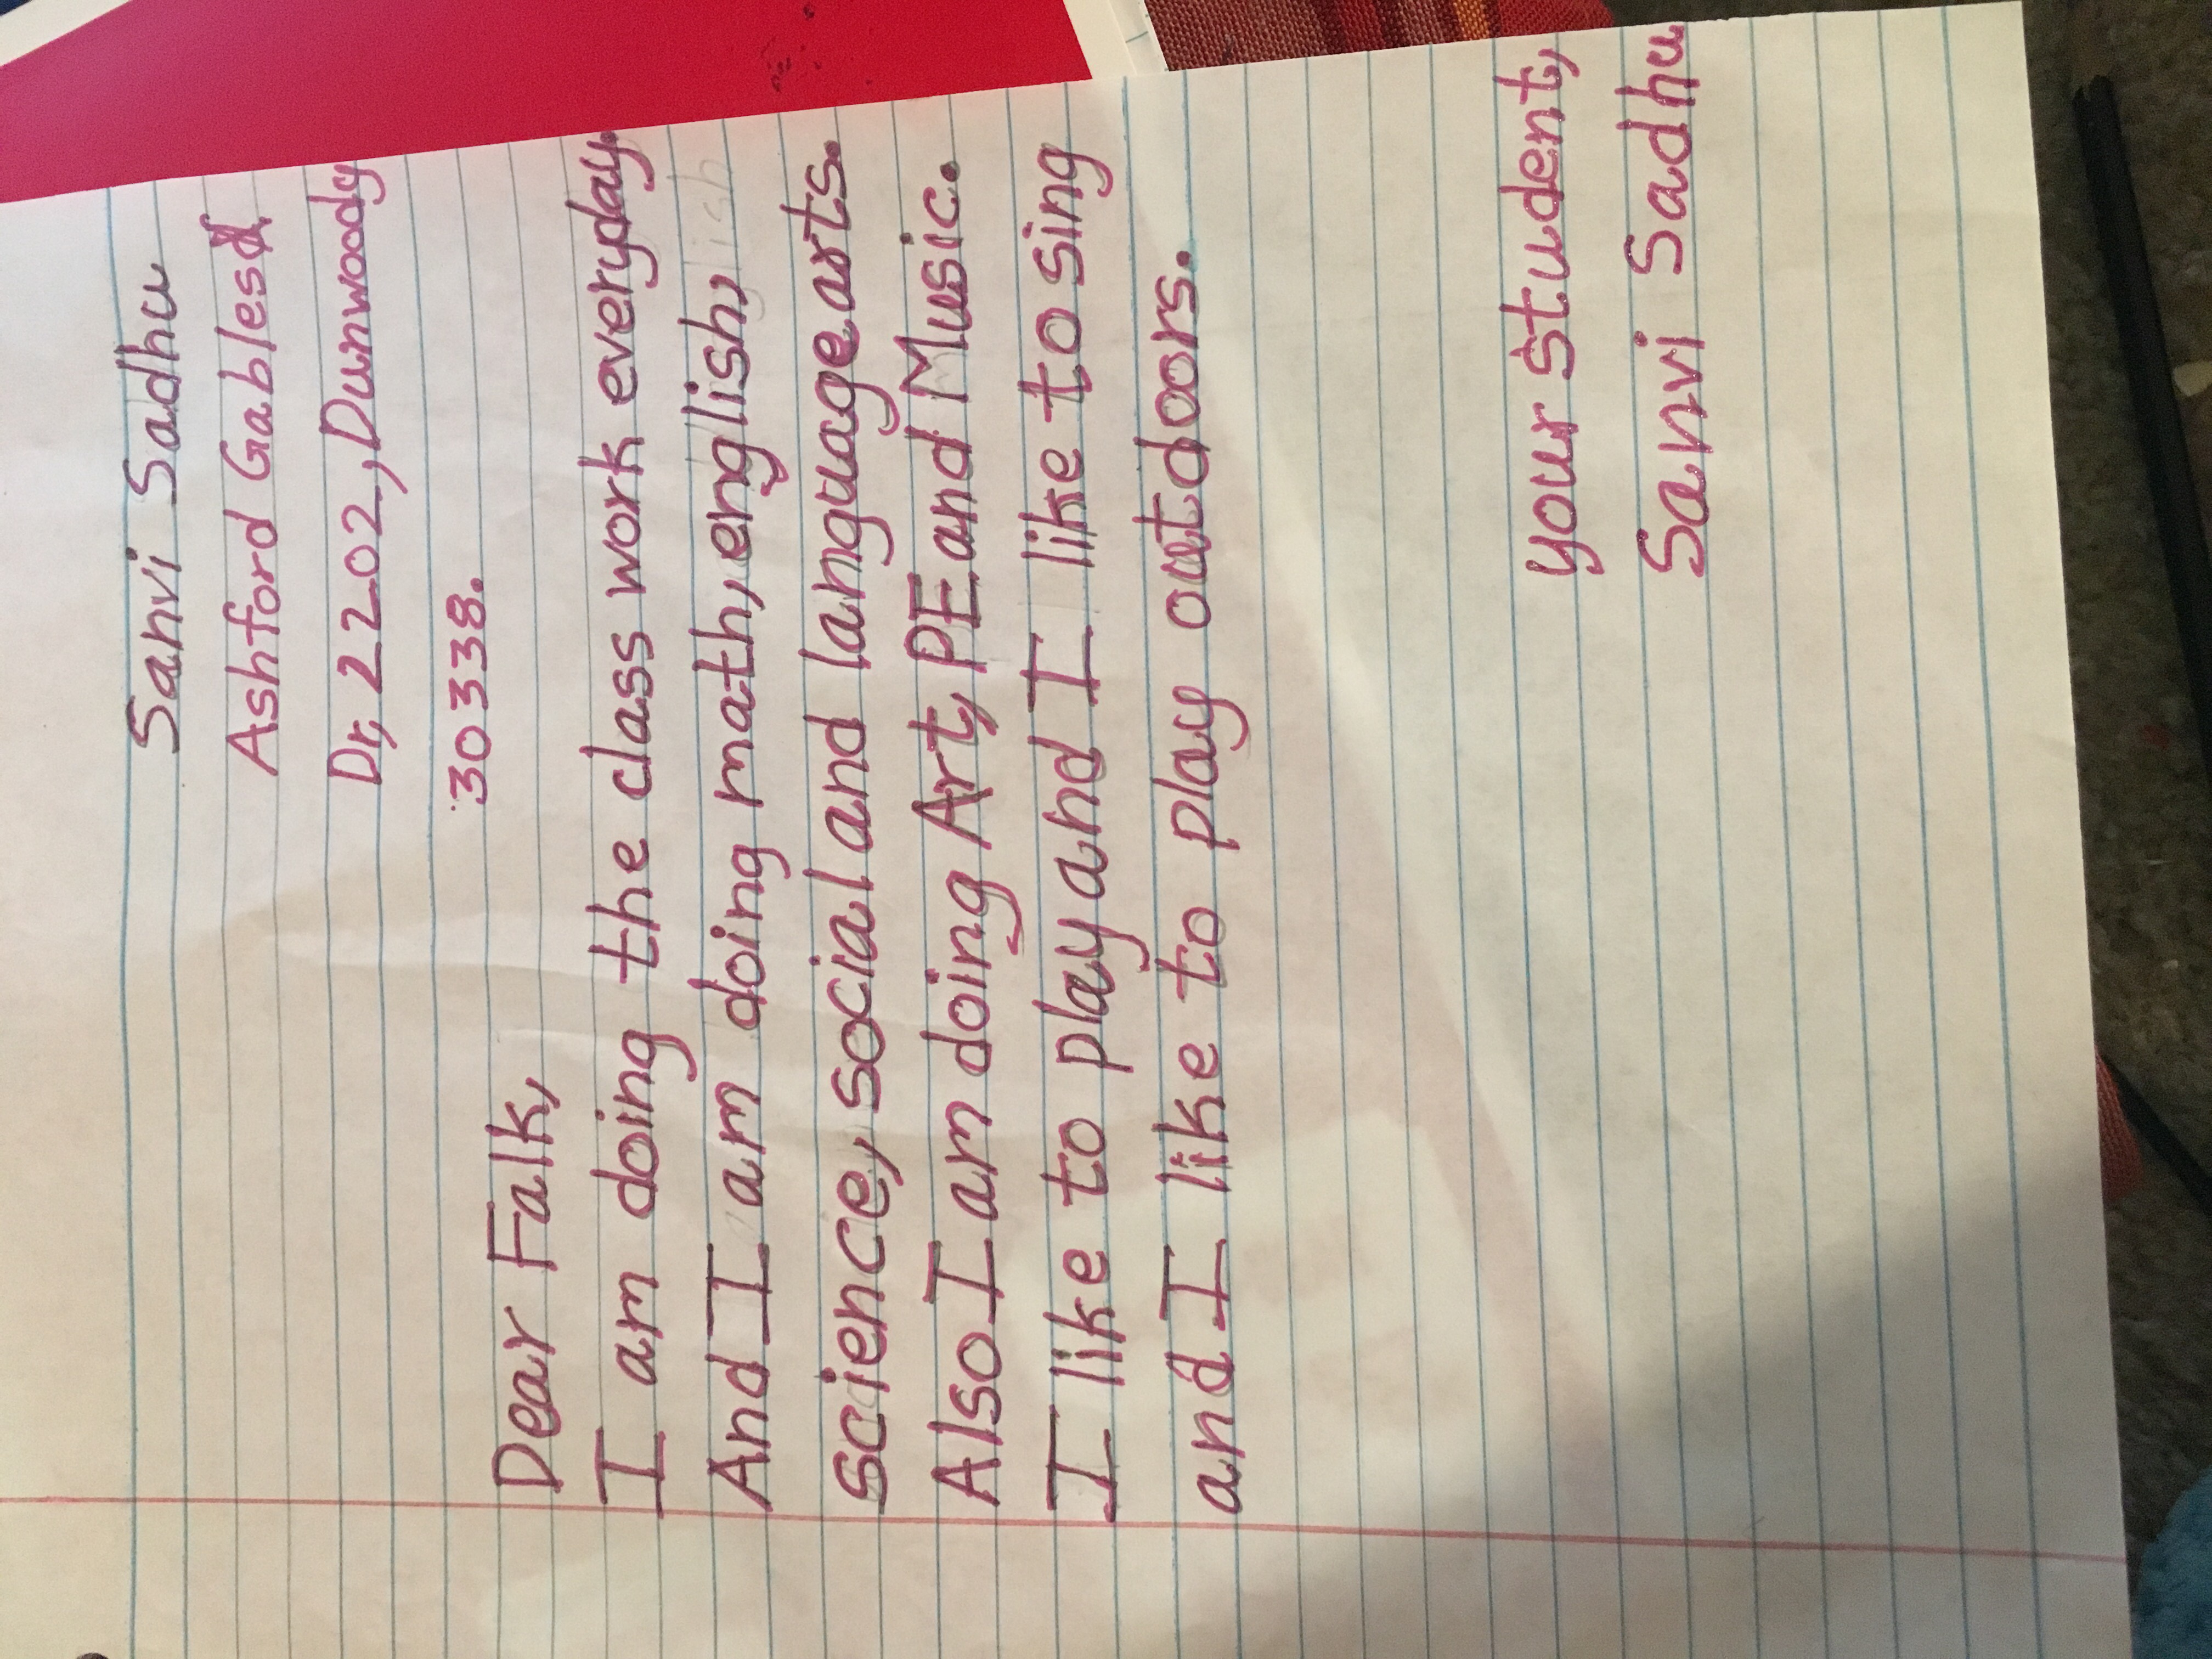 Sanvi Sadhu
Ashford Gables
Dr, 2202, Dunwoody
30338.
Dear Falk,
I am doing the class work everyday.
And I am doing math, english,
science, social and language arts.
Also I am doing Art, PE and Music.
I like to play and I like to sing
and I like to play outdoors.
your student,
Sanvi Sadhu